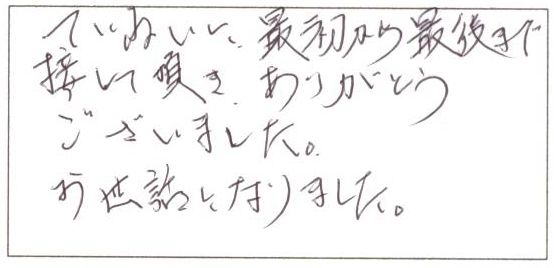 ていねいに、最初から最後まで
接して頂き、ありがとう
ございました。
お世話になりました。